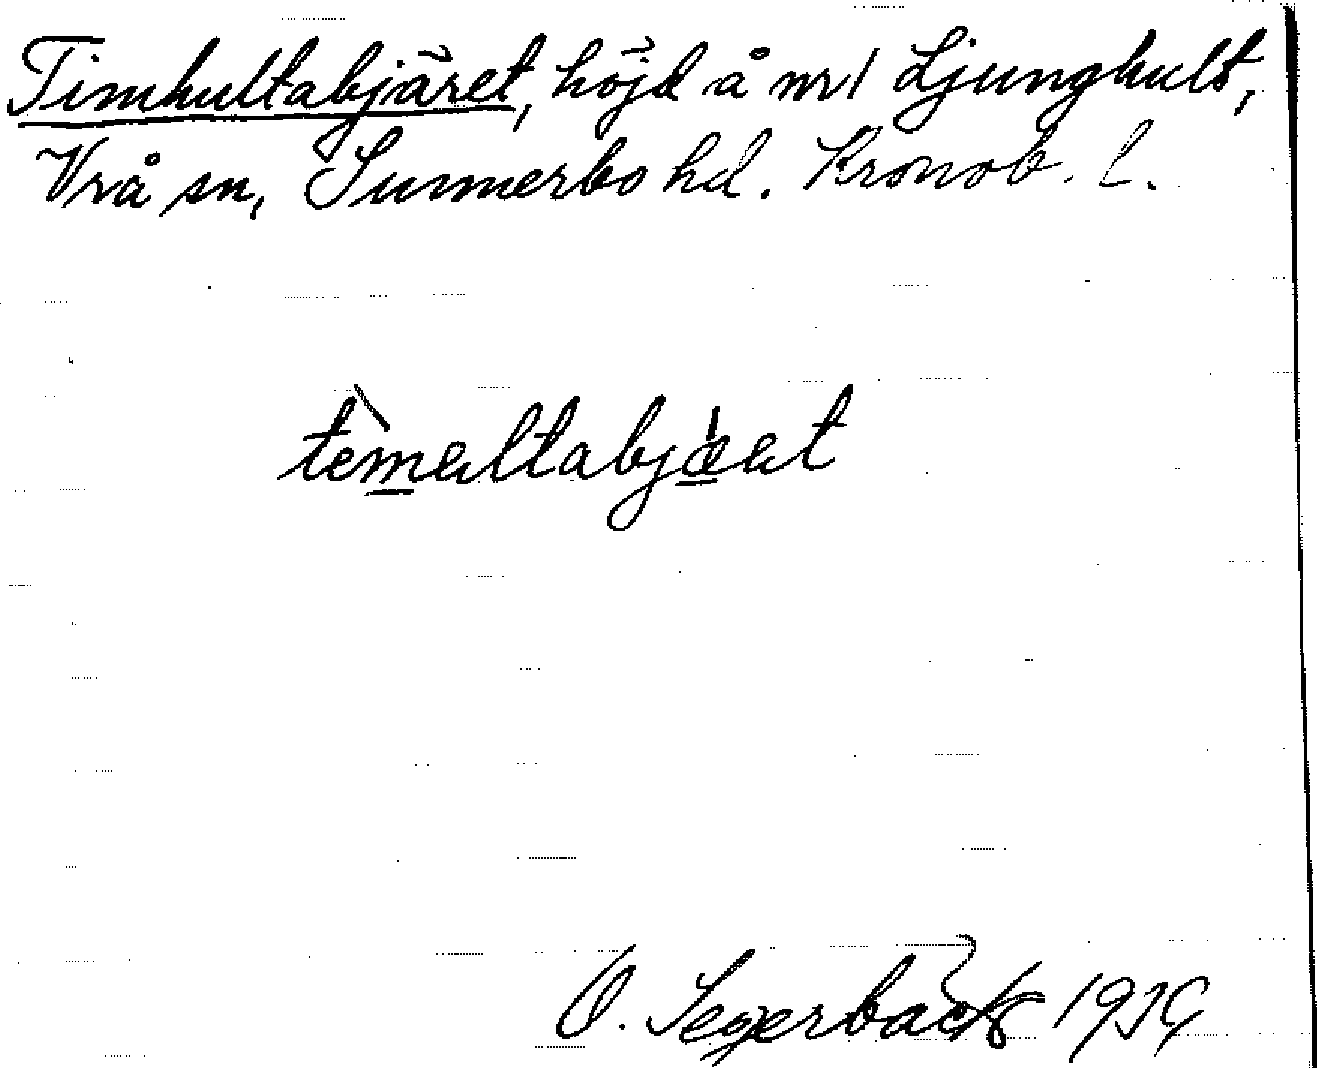 Timhultabjäret, höjd å nr1 Ljunghult,
Vrå sn, Sunnerbo hd. Kronob. l.
tèmaltabjæat
O. Segerbäck